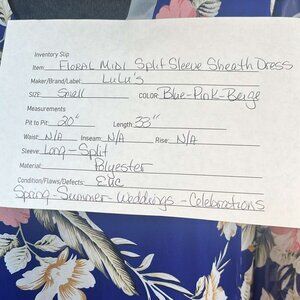 Inventory Slip
Item: Floral Midi Split Sleeve Sheath Dress
Maker/Brand/Label: LuLu's
SIZE: Small COLOR: Blue-Pink-Beige
Measurements
Pit to Pit: 20" Length: 33"
Waist: N/A Inseam: N/A Rise: N/A
Sleeve: Long-Split
Material: Polyester
Condition/Flaws/Defects: EUC
Spring-Summer-Weddings-Celebrations